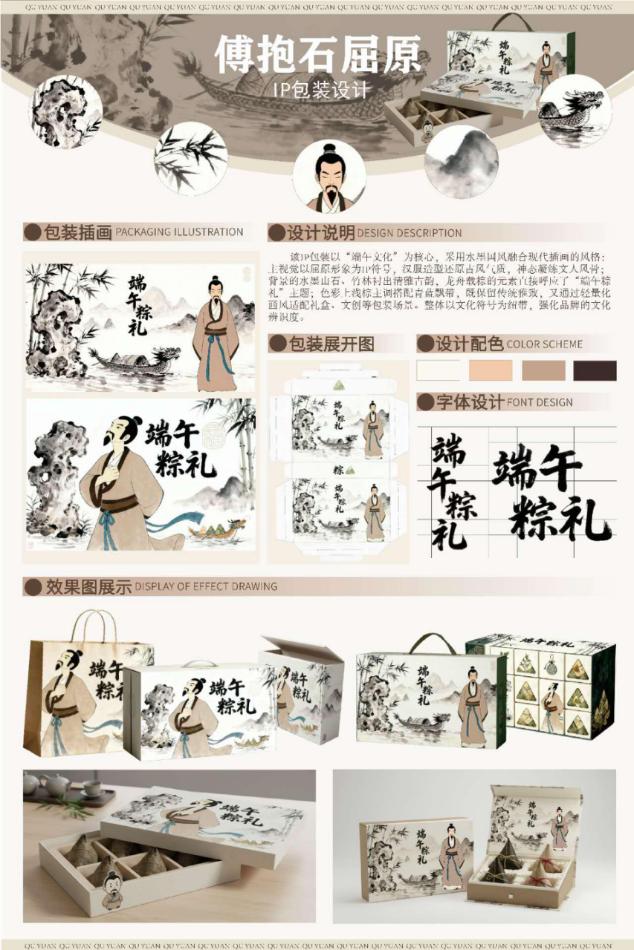 QU YUAN QU YUAN QU YUAN QU YUAN QU YUAN QU YUAN QU YUAN QU YUAN QU YUAN QU YUAN QU YUAN QU YUAN QU YUAN QU YUAN QU YUAN QU YUAN
傅抱石屈原
IP包装设计
端午粽礼
包装插画 PACKAGING ILLUSTRATION
设计说明 DESIGN DESCRIPTION
该IP包装以“端午文化”为核心，采用水墨国风融合现代插画的风格：
主视觉以屈原形象为IP符号，汉服造型还原古风气质，神态凝练文人风骨；
背景的水墨山石、竹林衬出清雅古韵，龙舟载粽的元素直接呼应了“端午粽
礼”主题；色彩上浅棕主调搭配青蓝飘带，既保留传统雅致，又通过轻量化
画风适配礼盒、文创等包装场景。整体以文化符号为纽带，强化品牌的文化
辨识度。
端午粽礼
端午
粽礼
包装展开图
端午粽礼
粽
端午粽礼
设计配色 COLOR SCHEME
字体设计 FONT DESIGN
端午粽礼
端午
粽礼
效果图展示 DISPLAY OF EFFECT DRAWING
端午
粽礼
端午
粽礼
端午粽礼
端午粽礼
端午
粽礼
端午粽礼
端午粽礼
QU YUAN QU YUAN QU YUAN QU YUAN QU YUAN QU YUAN QU YUAN QU YUAN QU YUAN QU YUAN QU YUAN QU YUAN QU YUAN QU YUAN QU YUAN QU YUAN